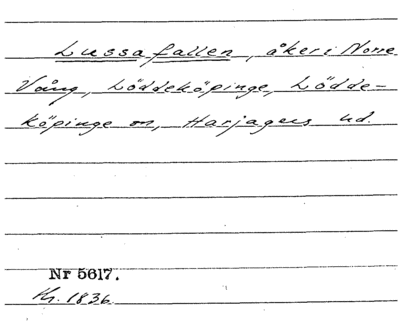 Lussafallen, åker i Norre
Vång, Löddeköpinge, Lödde-
köpinge sn, Harjagers hd.
Nr 5617.
Kr. 1836